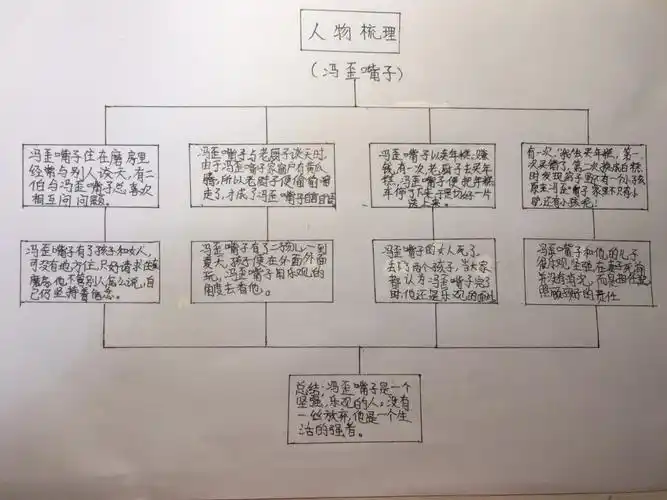 人物梳理
(冯歪嘴子)
冯歪嘴子住在磨房里
经常与别人谈天,有二
伯与冯歪嘴子总喜欢
相互问问题。
冯歪嘴子与老厨子谈天时,
由于冯歪嘴子家窗户有黄瓜
藤,所以老厨子便偷偷溜
走了,才成了冯歪嘴子自言自语
冯歪嘴子以卖年糕,赚
钱,有一次,老厨子去买年
糕,冯歪嘴子便把年糕
送上来。
有一次,我去买年糕,第一
孩
原来冯歪嘴子家里不只有小
驴,还有小孩呢!
冯歪嘴子有了孩子和女人,
可没有地方住,只好请求住在
磨房,他不管别人怎么说,自
己仍坚持着信念。
冯歪嘴子有了二孩儿,一到
夏天,孩子便在外面外面
玩,冯歪嘴子用乐观的
角度去看他。
冯歪嘴子的女人死了,
去下两个孩子,当大家
都认为冯歪嘴子完了
时,他还是乐观的面对
冯歪嘴子和他的儿子
很乐观,
照顾孩子的责任
总结:冯歪嘴子是一个
坚强,乐观的人。没有
一丝放弃,他是一个生
活的强者。